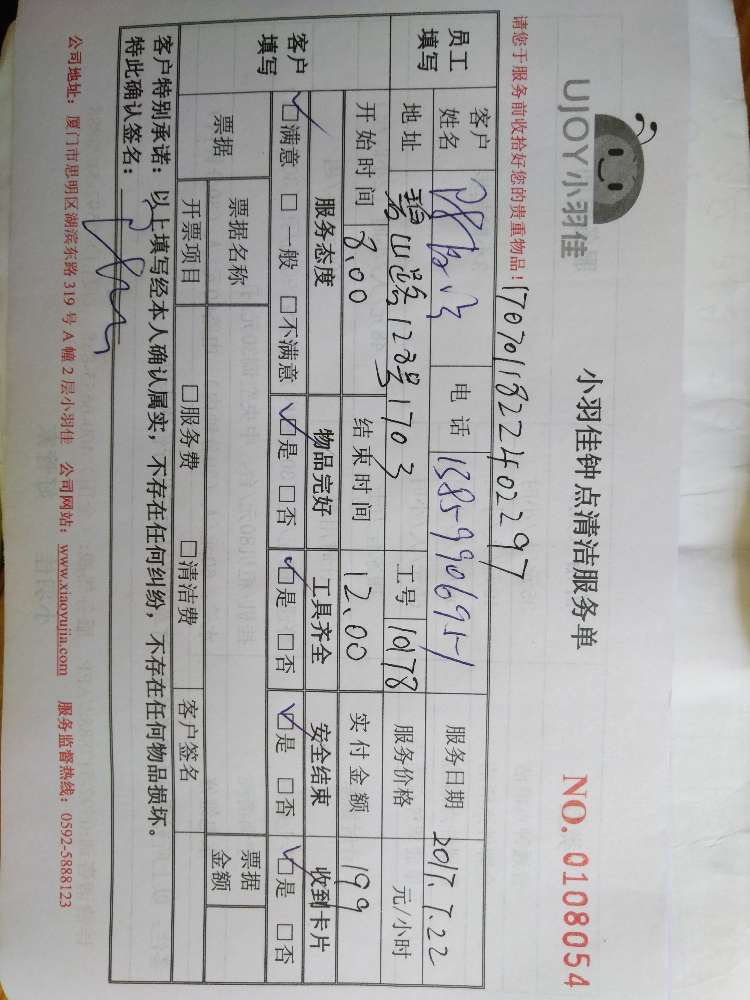 UJOY小羽佳
小羽佳钟点清洁服务单
NO. 0108054
请您于服务前收拾好您的贵重物品！
170701182240297
员工填写
客户姓名 电话 服务日期 2017.7.22
地址 碧山路12号1703 工号 10178 服务价格 元/小时
开始时间 8.00 结束时间 12.00 实付金额 199
客户填写
服务态度 物品完好 工具齐全 安全结束 收到卡片
☑满意 □一般 □不满意 ☑是 □否 ☑是 □否 ☑是 □否 ☑是 □否
票据 票据名称 票据金额
开票项目 □服务费 □清洁费 客户签名
客户特别承诺：以上填写经本人确认属实，不存在任何纠纷，不存在任何物品损坏。
特此确认签名：
公司地址：厦门市思明区湖滨东路319号A幢2层小羽佳 公司网站：www.xiaoyujia.com 服务监督热线：0592-5888123